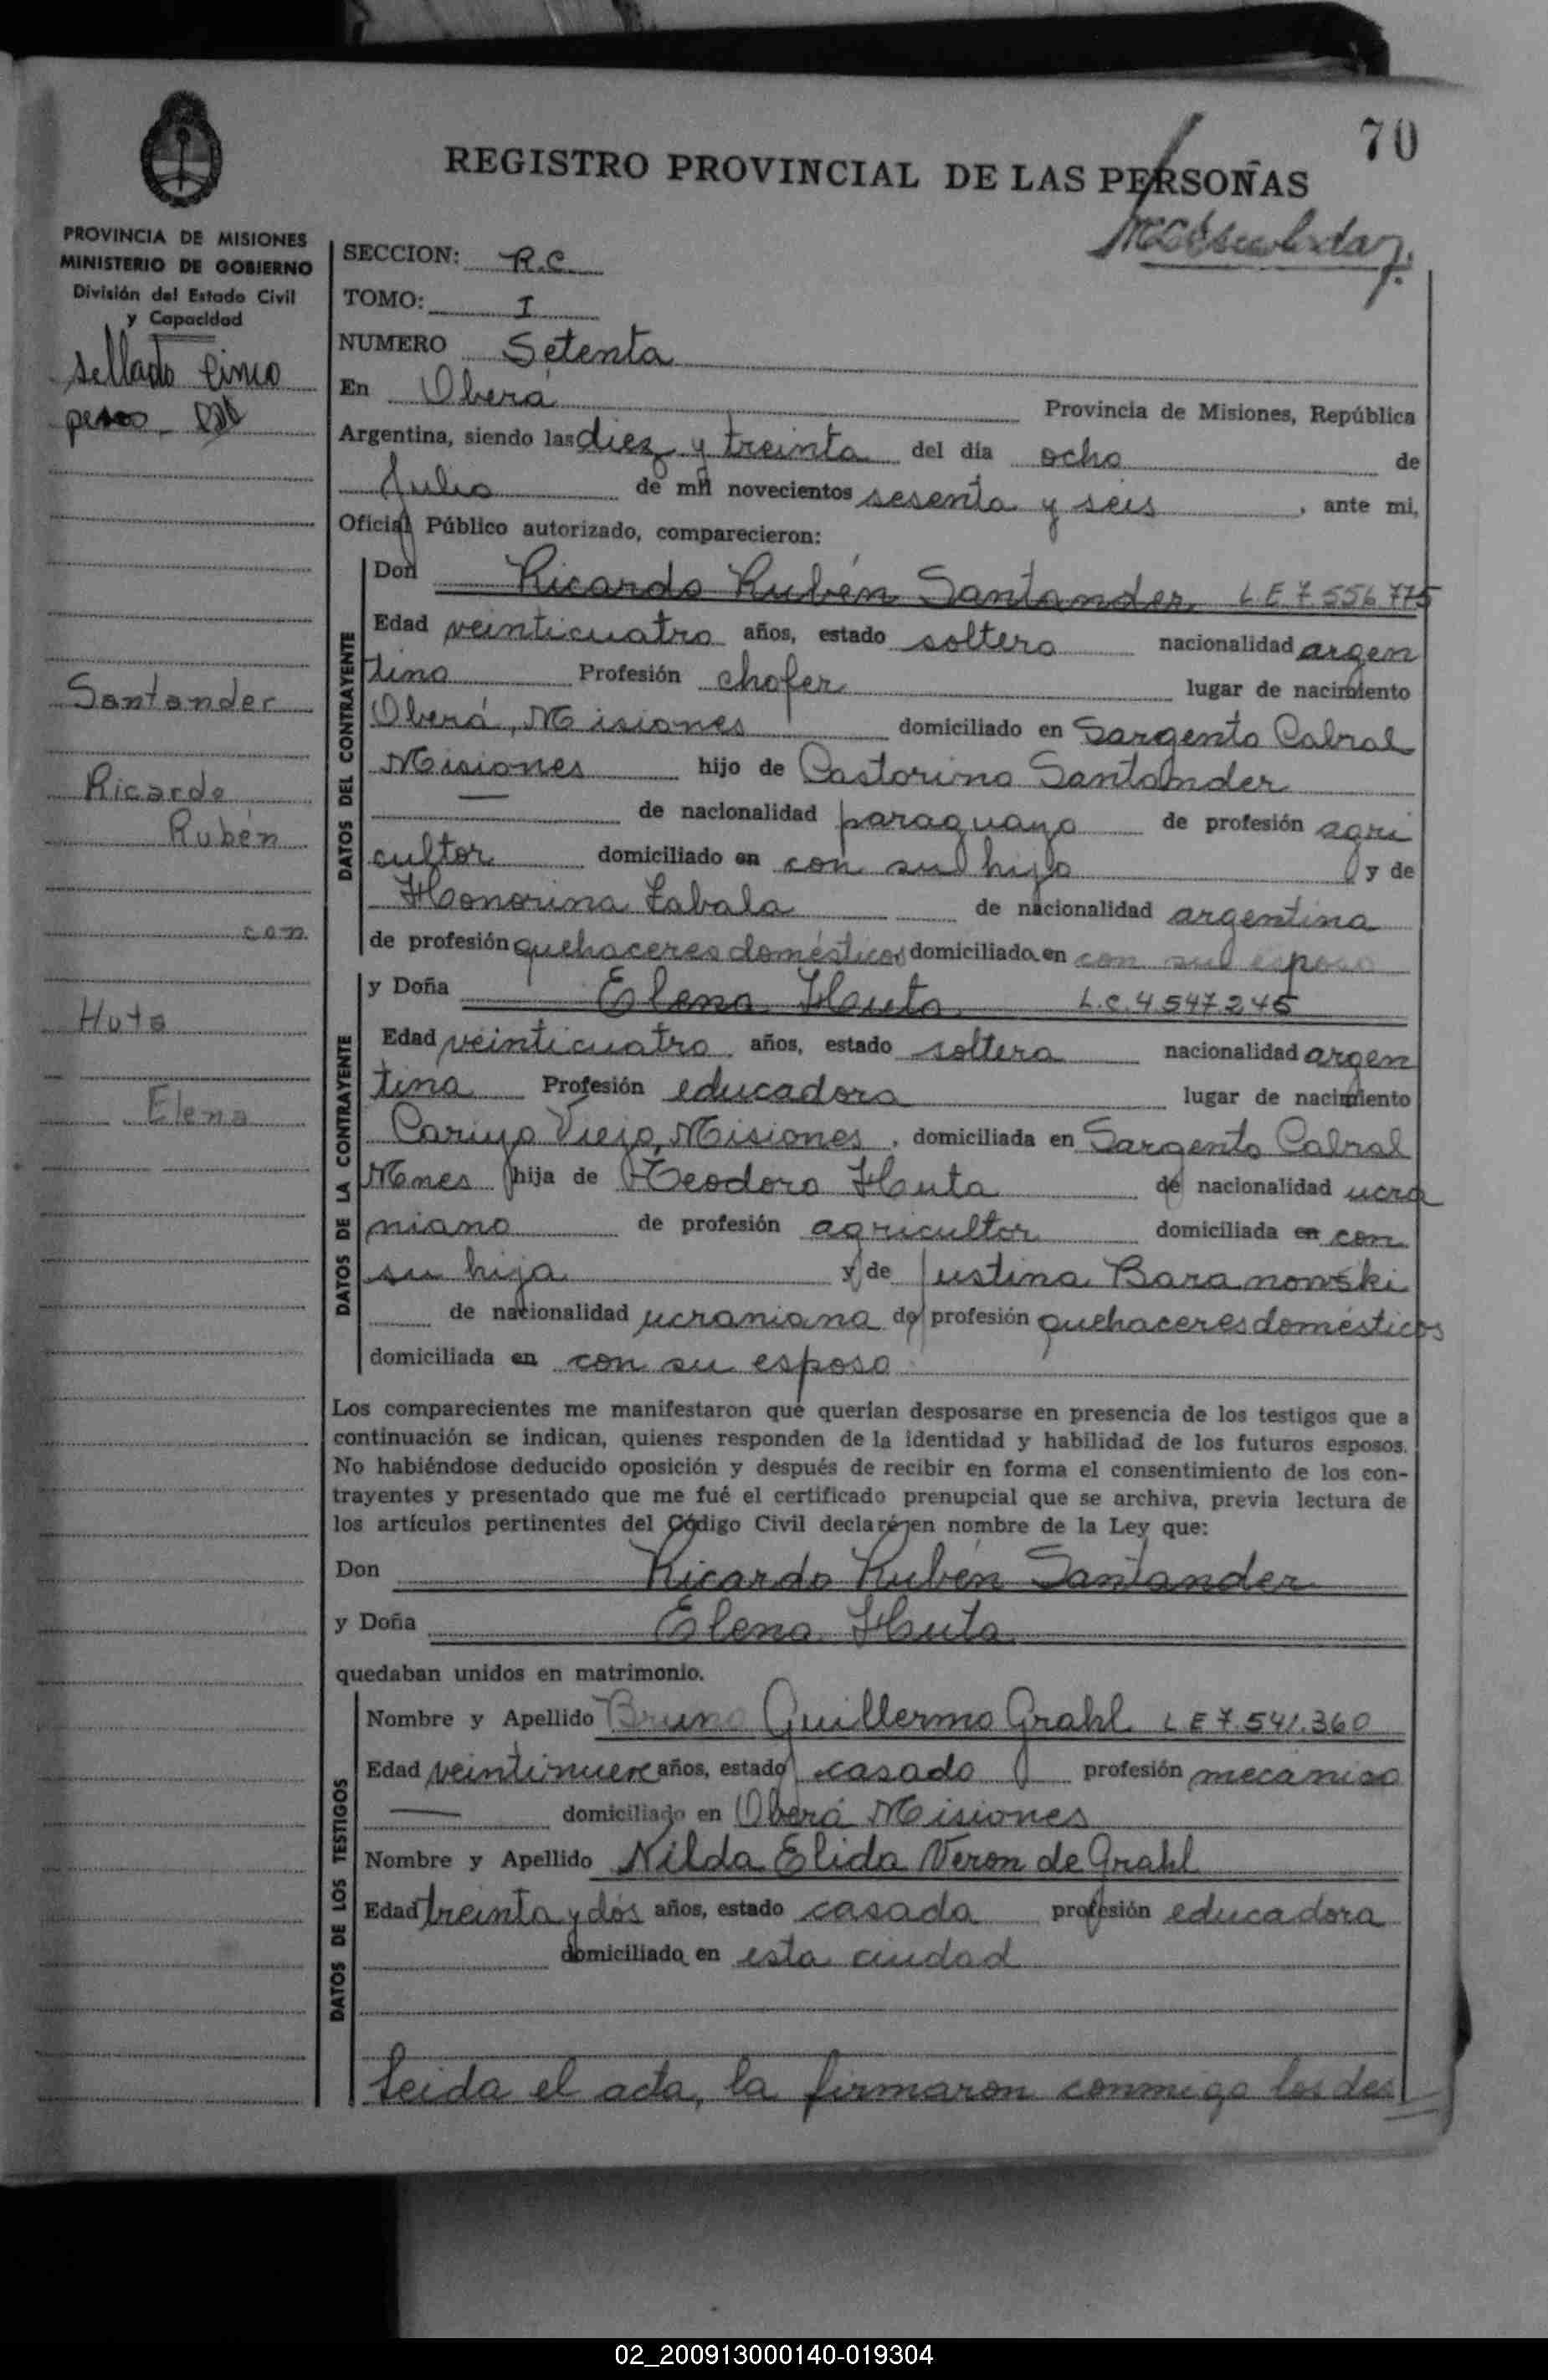 70
REGISTRO PROVINCIAL DE LAS PERSONAS
PROVINCIA DE MISIONES
MINISTERIO DE GOBIERNO
División del Estado Civil
y Capacidad
sellado cinco
pesos
Santander
Ricardo
Rubén
con
Huta
Elena
SECCION: R.C.
TOMO: I
NUMERO Setenta
En Oberá Provincia de Misiones, República
Argentina, siendo las diez y treinta del día ocho de
Julio de mil novecientos sesenta y seis, ante mi,
Oficial Público autorizado, comparecieron:
DATOS DEL CONTRAYENTE
Don Ricardo Rubén Santander L E 7.556.775
Edad veinticuatro años, estado soltero nacionalidad argen
tino Profesión chofer lugar de nacimiento
Oberá, Misiones domiciliado en Sargento Cabral
Misiones hijo de Pastorino Santander
— de nacionalidad paraguayo de profesión agri
cultor domiciliado en con su hijo y de
Honorina Zabala de nacionalidad argentina
de profesión quehaceres domésticos domiciliado en con su esposo
DATOS DE LA CONTRAYENTE
y Doña Elena Huta L.C. 4.547.245
Edad veinticuatro años, estado soltera nacionalidad argen
tina Profesión educadora lugar de nacimiento
Viejo, Misiones, domiciliada en Sargento Cabral
Mnes hija de Teodoro Huta de nacionalidad ucra
niano de profesión agricultor domiciliada en con
su hija y de Justina Baranowski
de nacionalidad ucraniana de profesión quehaceres domésticos
domiciliada en con su esposo
Los comparecientes me manifestaron que querían desposarse en presencia de los testigos que a
continuación se indican, quienes responden de la identidad y habilidad de los futuros esposos.
No habiéndose deducido oposición y después de recibir en forma el consentimiento de los con-
trayentes y presentado que me fué el certificado prenupcial que se archiva, previa lectura de
los artículos pertinentes del Código Civil declaré en nombre de la Ley que:
Don Ricardo Rubén Santander
y Doña Elena Huta
quedaban unidos en matrimonio.
DATOS DE LOS TESTIGOS
Nombre y Apellido Bruno Guillermo Grahl L E 7.541.360
Edad veintinueve años, estado casado profesión mecánico
— domiciliado en Oberá Misiones
Nombre y Apellido Nilda Elida Veron de Grahl
Edad treinta y dós años, estado casada profesión educadora
domiciliado en esta ciudad
Leida el acta, la firmaron conmigo los des
02_200913000140-019304